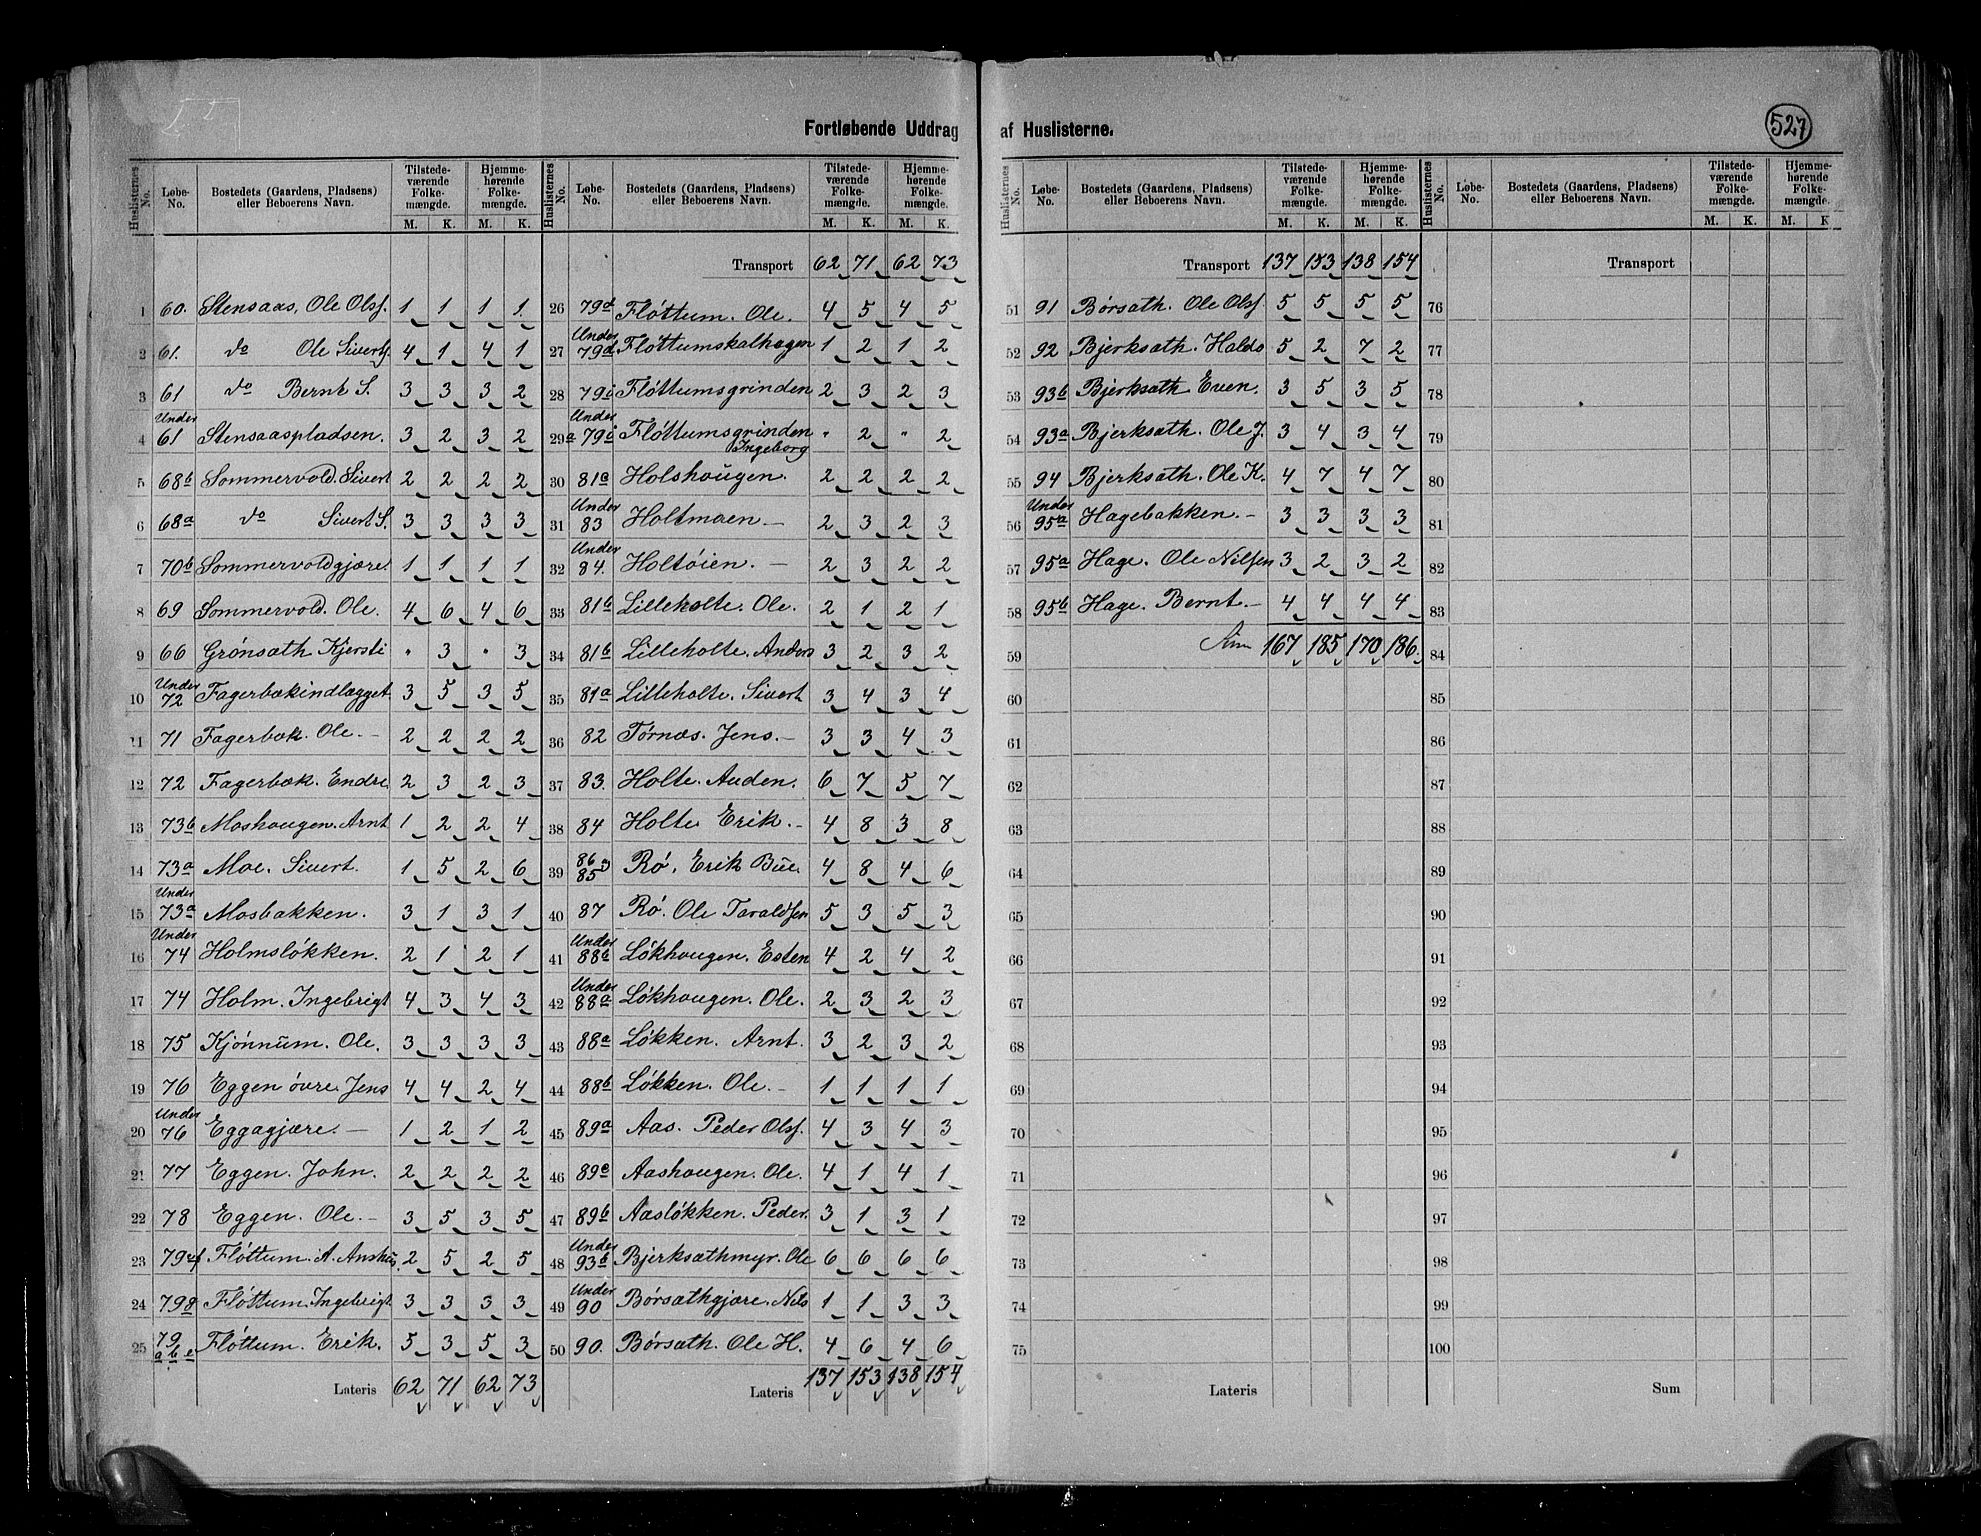 527
Fortløbende Uddrag af Huslisterne.
Huslisternes No. | Løbe-No. | Bostedets (Gaardens, Pladsens) eller Beboerens Navn. | Tilstede-værende Folke-mængde. M. K. | Hjemme-hørende Folke-mængde. M. K.
1 60. Stensaas, Ole Olsf. 1 1 1 1
2 61. do Ole Sivertf. 4 1 4 1
3 61 do Bernt S. 3 3 3 2
4 Under 61 Stensaaspladsen. 3 2 3 2
5 68b Sommervold. Sivert 2 2 2 2
6 68a do Sivert S. 3 3 3 3
7 70b Sommervoldgjære. 1 1 1 1
8 69 Sommervold. Ole. 4 6 4 6
9 66 Grónsath Kjersti " 3 " 3
10 Under 72 Fagerbækindlægget 3 5 3 5
11 71 Fagerbæk. Ole. – 2 2 2 2
12 72 Fagerbæk. Endre 2 3 2 3
13 73b Moshougen. Arnt 1 2 2 4
14 73a Moe. Sivert. 1 5 2 6
15 Under 73a Mosbakken. 3 1 3 1
16 Under 74 Holmslókken. 2 1 2 1
17 74 Holm. Ingebrigt 4 3 4 3
18 75 Kjónnum. Ole. 3 3 3 3
19 76 Eggen óvre. Jens 4 4 2 4
20 Under 76 Eggagjære. – 1 2 1 2
21 77 Eggen. John. 2 2 2 2
22 78 Eggen. Ole. – 3 5 3 5
23 79 Flóttum. A. 2 5 2 5
24 79g Flóttum. Ingebrigt 3 3 3 3
25 79 a b e Flóttum. Erik. 5 3 5 3
Lateris 62 71 62 73
Huslisternes No. | Løbe-No. | Bostedets (Gaardens, Pladsens) eller Beboerens Navn. | Tilstede-værende Folke-mængde. M. K. | Hjemme-hørende Folke-mængde. M. K.
Transport 62 71 62 73
26 79d Flóttum. Ole. 4 5 4 5
27 Under 79d Flóttumskalhagen 1 2 1 2
28 79i Flóttumsgrinden 2 3 2 3
29a Under 79i Flóttumsgrinden Ingeborg " 2 " 2
30 81a Holshougen. 2 2 2 2
31 Under 83 Holtmoen – 2 3 2 3
32 Under 84. Holtóien. – 2 3 2 2
33 81b Lilleholte. Ole. 2 1 2 1
34 81b Lilleholte. Anders 3 2 3 2
35 81a Lilleholte. Sivert 3 4 3 4
36 82 Tórnæs. Jens. – 3 3 4 3
37 83. Holte. Auden. 6 7 5 7
38 84 Holte Erik. – 4 8 3 8
39 86 85 Ró. Erik Bue 4 8 4 6
40 87 Ró. Ole Taraldsen 5 3 5 3
41 Under 88b Lókhougen. Esten 4 2 4 2
42 Under 88a Lókhougen. Ole. 2 3 2 3
43 88a Lókken. Arnt. 3 2 3 2
44 88b Lókken. Ole. – 1 1 1 1
45 89a Aas. Peder Olsf. 4 3 4 3
46 89c Aashougen. Ole. 4 1 4 1
47 89b Aaslókken. Peder. 3 1 3 1
48 Under 93b Bjerksæthmyr. Ole 6 6 6 6
49 Under 90 Bórsæthgjære. Nils 1 1 3 3
50 90. Bórsæth. Ole H. 4 6 4 6
Lateris 137 153 138 154
Huslisternes No. | Løbe-No. | Bostedets (Gaardens, Pladsens) eller Beboerens Navn. | Tilstede-værende Folke-mængde. M. K. | Hjemme-hørende Folke-mængde. M. K.
Transport 137 153 138 154
51 91 Bórsæth. Ole Olsf. 5 5 5 5
52 92 Bjerksæth. Haldo 5 2 7 2
53 93b Bjerksæth Even. 3 5 3 5
54 93a Bjerksæth. Ole J. 3 4 3 4
55 94 Bjerksæth. Ole K. 4 7 4 7
56 Under 95a Hagebakken. – 3 3 3 3
57 95a Hage. Ole Nilsen 3 2 3 2
58 95b Hage. Bernt. – 4 4 4 4
59 Sum 167 185 170 186.
60
61
62
63
64
65
66
67
68
69
70
71
72
73
74
75
Lateris
Huslisternes No. | Løbe-No. | Bostedets (Gaardens, Pladsens) eller Beboerens Navn. | Tilstede-værende Folke-mængde. M. K. | Hjemme-hørende Folke-mængde. M. K
Transport
76
77
78
79
80
81
82
83
84
85
86
87
88
89
90
91
92
93
94
95
96
97
98
99
100
Sum